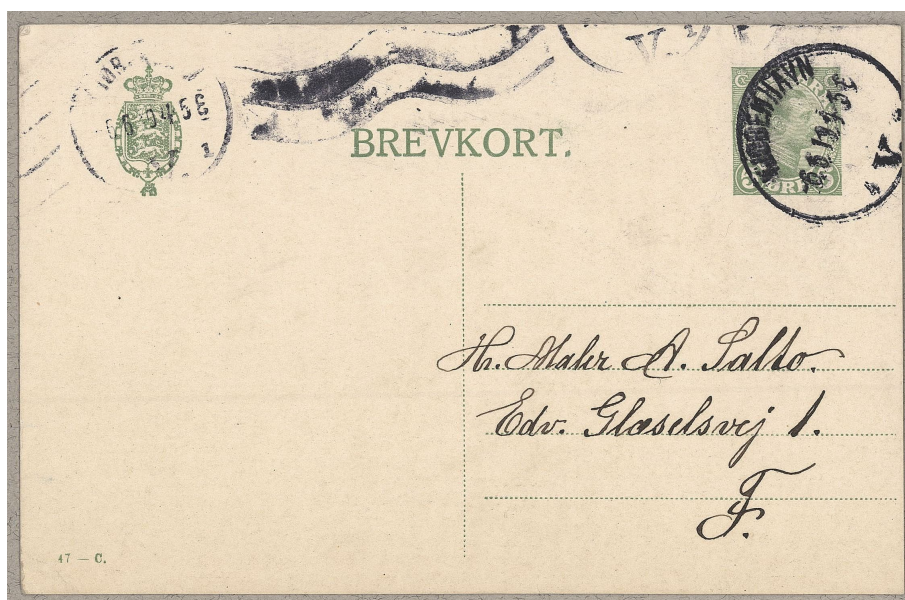 BREVKORT.
KJØBENHAVN
Hr. Maler A. Salto.
Edv. Glæselsvej 1.
F.
47 — C.